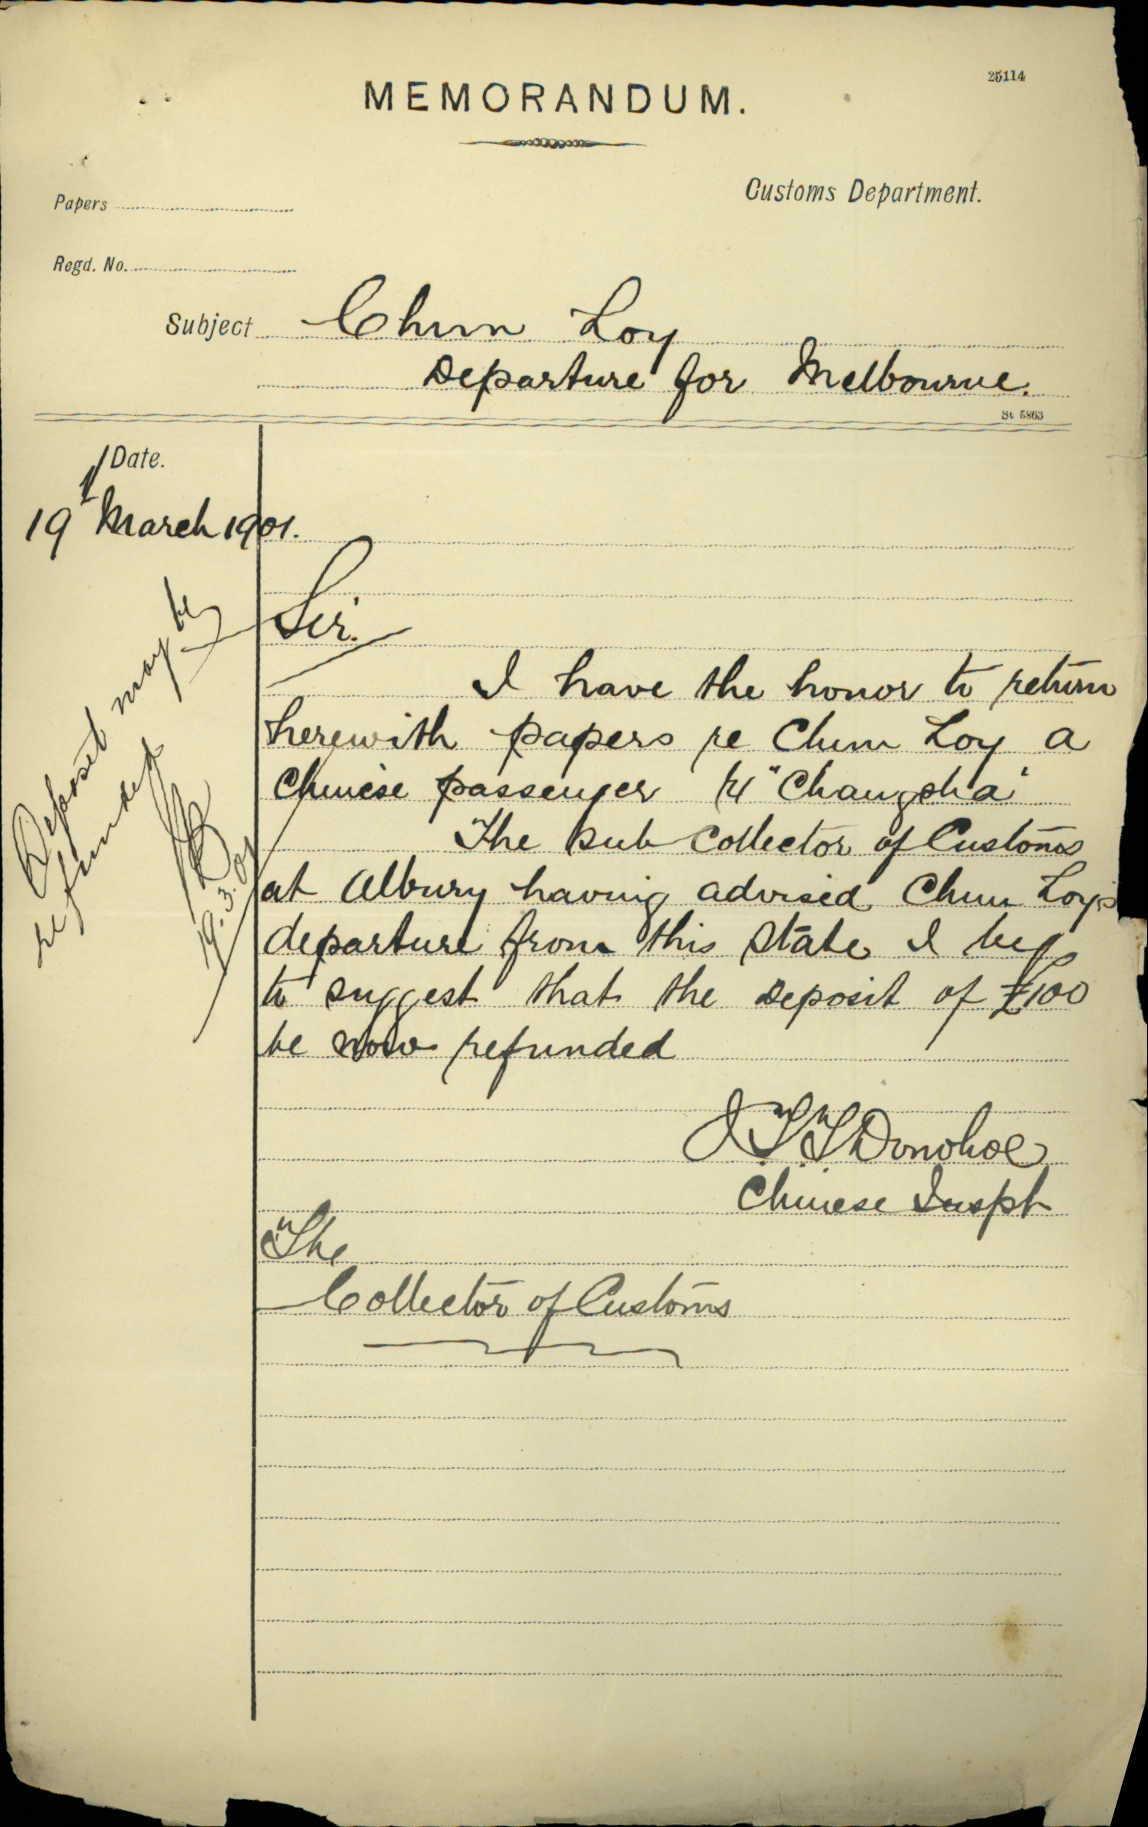 25114
MEMORANDUM.
Customs Department.
Papers
Regd. No.
Subject Chun Loy
Departure for Melbourne.
St 5863
Date.
19 March 1901.
Sir.
I have the honor to return
herewith papers re Chun Loy a
Chinese passenger "Changsha"
The Sub Collector of Customs
at Albury having advised Chun Loy's
departure from this State I beg
to suggest that the deposit of £100
be now refunded
J.T.T Donohoe
Chinese Inspt
The
Collector of Customs
Deposit may be
refunded
19.3.01